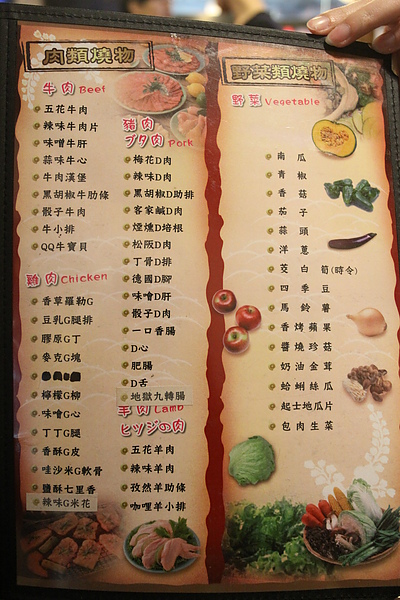 肉類燒物
牛肉 Beef
五花牛肉
辣味牛肉片
味噌牛肝
蒜味牛心
牛肉漢堡
黑胡椒牛肋條
骰子牛肉
牛小排
QQ牛寶貝
雞肉 Chicken
香草羅勒G
豆乳G腿排
膠原G丁
麥克G塊
檸檬G柳
味噌G心
丁丁G腿
香酥G皮
哇沙米G軟骨
鹽酥七里香
辣味G米花
豬肉
ブタ肉 Pork
梅花D肉
辣味D肉
黑胡椒D助排
客家鹹D肉
煙燻D培根
松阪D肉
丁骨D排
德國D腳
味噌D肝
骰子D肉
一口香腸
D心
肥腸
D舌
地獄九轉腸
羊肉 Lamb
ヒツジの肉
五花羊肉
辣味羊肉
孜然羊肋條
咖哩羊小排
野菜類燒物
野菜 Vegetable
南瓜
青椒
香菇
茄子
蒜頭
洋蔥
茭白筍(時令)
四季豆
馬鈴薯
香烤蘋果
醬燒珍菇
奶油金茸
蛤蜊絲瓜
起士地瓜片
包肉生菜